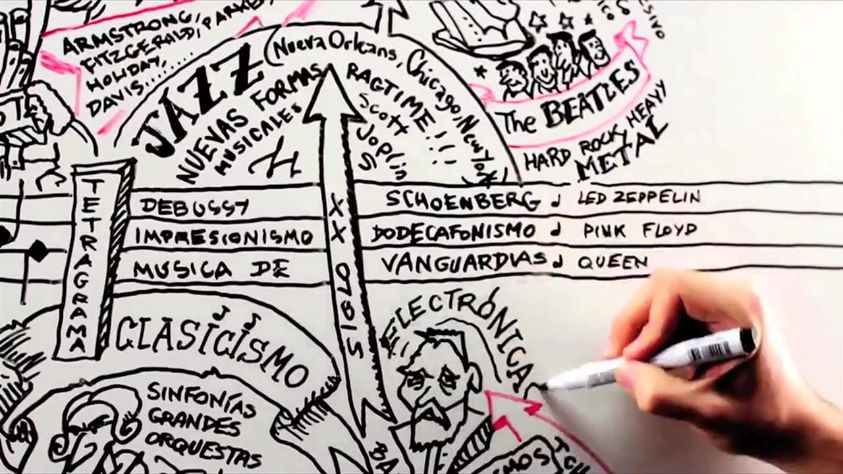 ARMSTRONG,
FITZGERALD, PARKER,
HOLIDAY,
DAVIS..........
JAZZ
(Nueva Orleans, Chicago, New York)
NUEVAS FORMAS
MUSICALES
RAGTIME!!!
Scott
Joplin
The BEATLES
HARD ROCK, HEAVY
METAL
TETRAGRAMA
DEBUSSY
IMPRESIONISMO
MUSICA DE
SIGLO XX
SCHOENBERG
DODECAFONISMO
VANGUARDIAS
LED ZEPPELIN
PINK FLOYD
QUEEN
CLASICISMO
SINFONÍAS
GRANDES
ORQUESTAS
ELECTRÓNICA